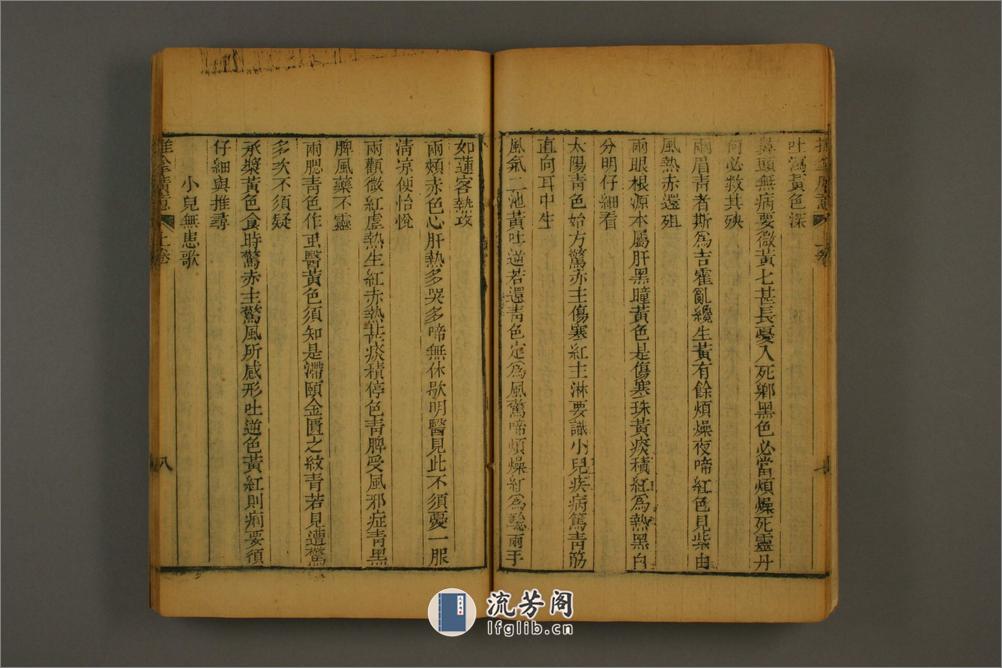 吐瀉黃色深
鼻頭無病要微黃七甚長憂入死鄉黑色必當煩燥死靈丹
何必救其殃
兩眉青者斯為吉霍亂纔生黃有餘煩燥夜啼紅色見柴由
風熱赤還殂
兩眼根源本屬肝黑瞳黃色是傷寒珠黃痰積紅為熱黑白
分明仔細看
太陽青色始方驚赤主傷寒紅主淋要識小兒疾病篤青筋
直向耳中生
風氣二池黃吐逆若還青色定為風驚啼煩燥紅為驗兩手
如蓮客熱攻
兩頰赤色心肝熱多哭多啼無休歇明醫見此不須憂一服
清凉便怡悅
兩顴微紅虛熱生紅赤熱甚痰積停色青脾受風邪症青黑
脾風藥不靈
兩腮青色作虫醫黃色須知是滯頤金匱之紋青若見遭驚
多次不須疑
承漿黃色食時驚赤主驚風所感形吐逆色黃紅則痢要須
仔細與推尋
小兒無患歌
推拿廣意
上卷
八
流芳阁
lfglib.cn